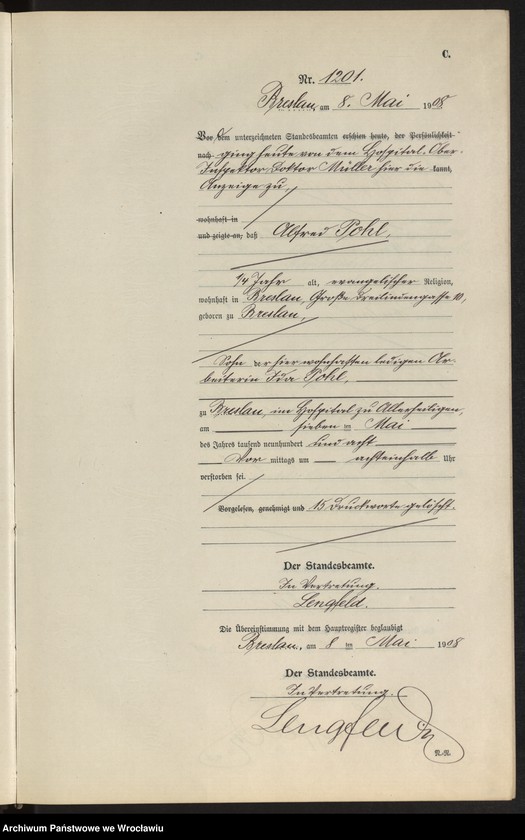 C.
Nr. 1201.
Breslau, am 8. Mai 1908
Vor dem unterzeichneten Standesbeamten erschien heute, der Persönlichkeit
nach ging heute von dem Hospital-Ober-
Inspektor Doktor Müller hier die kannt,
Anzeige zu,
wohnhaft in
und zeigte an, daß Alfred Pohl,
1/4 Jahr alt, evangelischer Religion,
wohnhaft in Breslau, Große Dreilindengasse 10,
geboren zu Breslau,
Sohn der hier wohnhaften ledigen Ar-
beiterin Ida Pohl,
zu Breslau, im Hospital zu Allerheiligen,
am sieben ten Mai
des Jahres tausend neunhundert und acht
Vor mittags um achteinhalb Uhr
verstorben sei.
Vorgelesen, genehmigt und 15 Druckworte gelöscht.
Der Standesbeamte.
In Vertretung.
Lengfeld.
Die Übereinstimmung mit dem Hauptregister beglaubigt
Breslau, am 8 ten Mai 1908
Der Standesbeamte.
In Vertretung.
Lengfeld
N.N.
Archiwum Państwowe we Wrocławiu